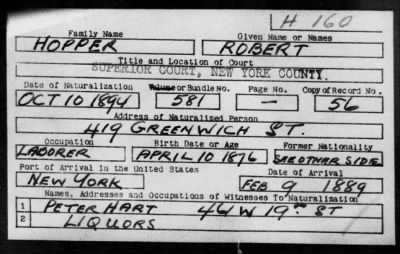 H 160
Family Name Given Name or Names
HOPPER ROBERT
Title and Location of Court
SUPERIOR COURT, NEW YORK COUNTY.
Date of Naturalization Volume or Bundle No. Page No. Copy of Record No.
OCT 10 1894 581 — 56
Address of Naturalized Person
419 GREENWICH ST.
Occupation Birth Date or Age Former Nationality
LABORER APRIL 10 1876 SEE OTHER SIDE
Port of Arrival in the United States Date of Arrival
NEW YORK FEB 9 1889
Names, Addresses and Occupations of Witnesses To Naturalization
1 PETER HART 461 W 19TH ST
2 LIQUORS